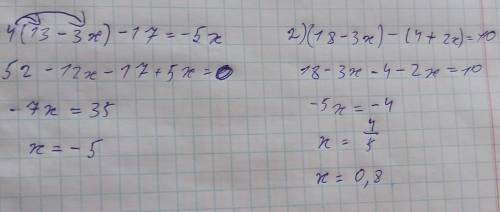 4(13-3x)-17=-5x
52-12x-17+5x=0
-7x=35
x=-5
2)(18-3x)-(4+2x)=10
18-3x-4-2x=10
-5x=-4
x=4/5
x=0,8